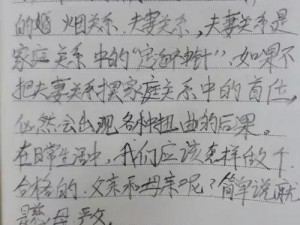 的婚姻关系、夫妻关系,夫妻关系是
家庭关系中的"定海神针",如果不
把夫妻关系摆家庭关系中的首位,
必然会出现各种扭曲的后果。
在日常生活中,我们应该怎样做个
合格的父亲和母亲呢?简单说就
是慈母严父